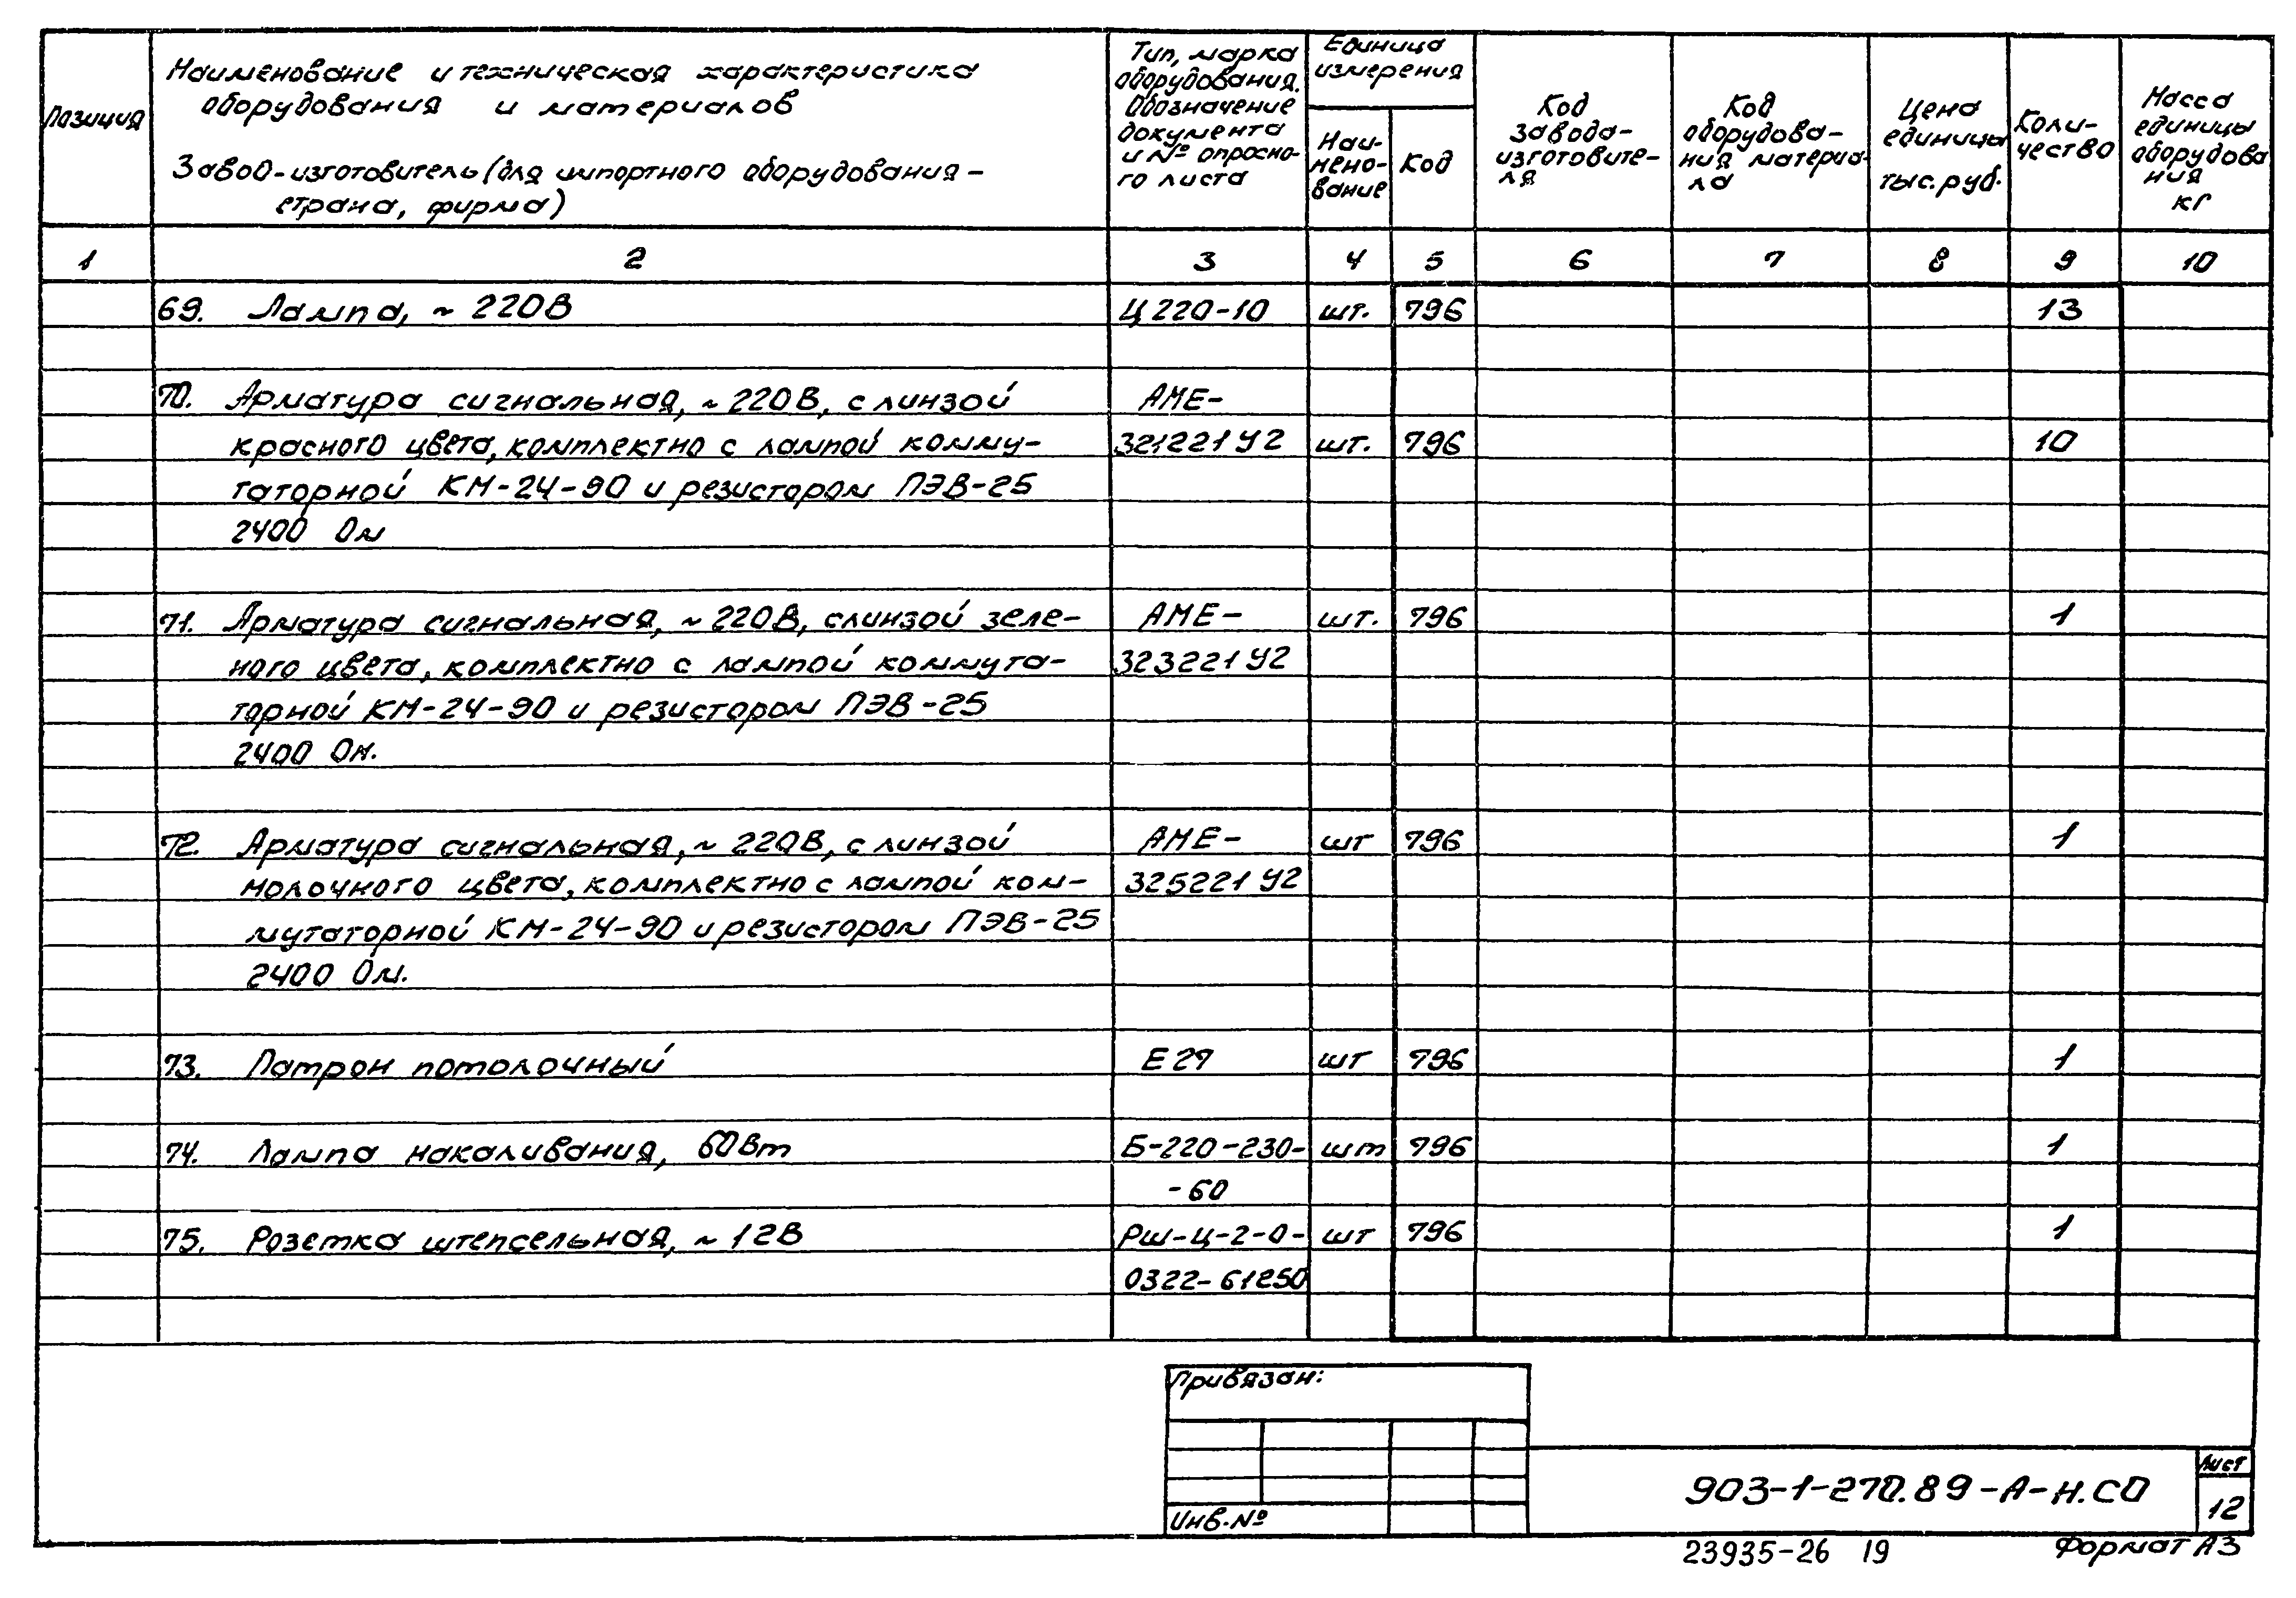 Позиция
Наименование и техническая характеристика
оборудования и материалов
Завод-изготовитель (для импортного оборудования -
страна, фирма)
Тип, марка
оборудования.
Обозначение
документа
и № опросно-
го листа
Единица
измерения
Наи-
мено-
вание
Код
Код
завода-
изготовите-
ля
Код
оборудова-
ния материа-
ла
Цена
единицы
тыс. руб.
Коли-
чество
Масса
единицы
оборудова
ния
кг
1 2 3 4 5 6 7 8 9 10
69. Лампа, ~ 220В Ц 220-10 шт. 796 13
70. Арматура сигнальная, ~ 220В, с линзой АМЕ-
красного цвета, комплектно с лампой комму- 321221У2 шт. 796 10
таторной КМ-24-90 и резистором ПЭВ-25
2400 Ом
71. Арматура сигнальная, ~ 220В, с линзой зеле- АМЕ- шт. 796 1
ного цвета, комплектно с лампой коммута- 323221У2
торной КМ-24-90 и резистором ПЭВ-25
2400 Ом.
72. Арматура сигнальная, ~ 220В, с линзой АМЕ- шт 796 1
молочного цвета, комплектно с лампой ком- 325221У2
мутаторной КМ-24-90 и резистором ПЭВ-25
2400 Ом.
73. Патрон потолочный Е27 шт 796 1
74. Лампа накаливания, 60Вт Б-220-230- шт 796 1
-60
75. Розетка штепсельная, ~ 12В РШ-Ц-2-0- шт 796 1
0322-61250
Привязан:
Инв. №
903-1-270.89-А-Н.СО
Лист
12
23935-26 19
Формат А3